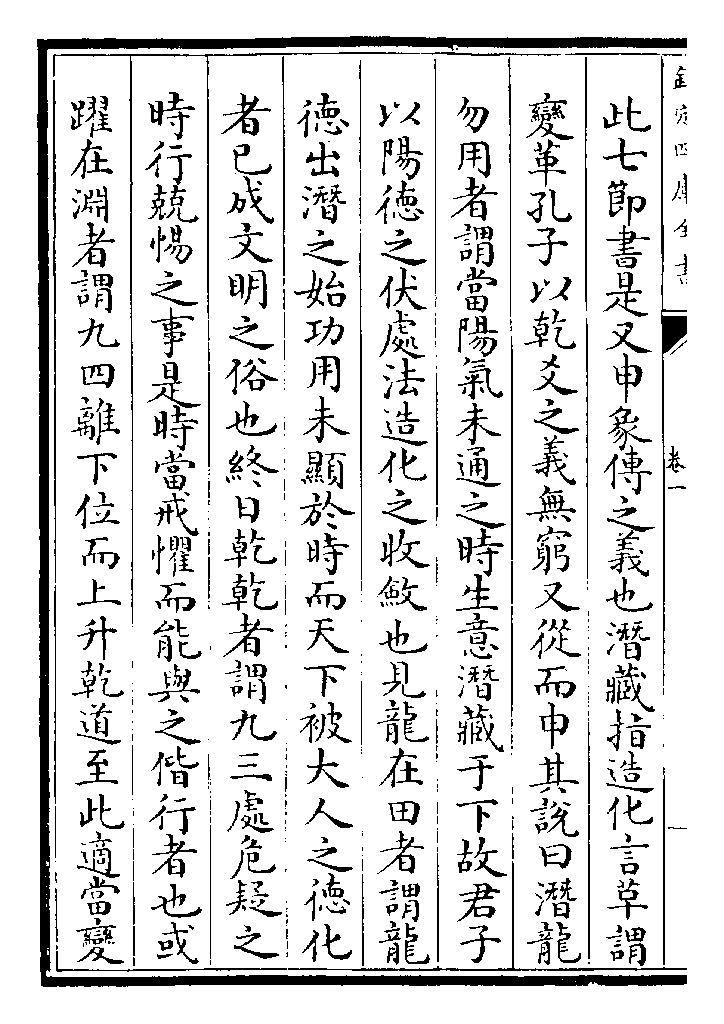 欽定四庫全書
卷一
此七節書是又申象傳之義也潛藏指造化言草謂
變革孔子以乾爻之義無窮又從而申其說曰潛龍
勿用者謂當陽氣未通之時生意潛藏于下故君子
以陽德之伏處法造化之收斂也見龍在田者謂龍
德出潛之始功用未顯於時而天下被大人之德化
者已成文明之俗也終日乾乾者謂九三處危疑之
時行兢惕之事是時當戒懼而能與之偕行者也或
躍在淵者謂九四離下位而上升乾道至此適當變